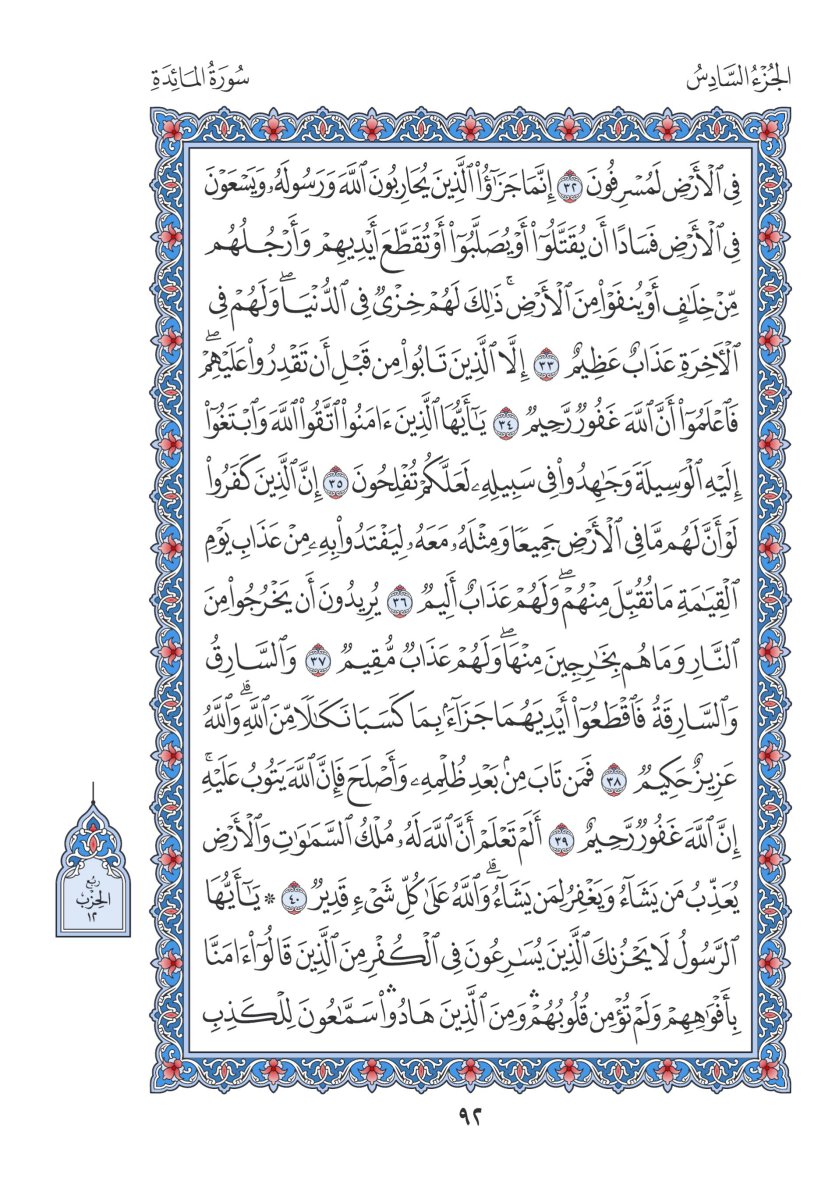 الجُزْءُ السَّادِسُ
سُورَةُ المَائِدَةِ
فِي ٱلۡأَرۡضِ لَمُسۡرِفُونَ ٣٢ إِنَّمَا جَزَٰٓؤُاْ ٱلَّذِينَ يُحَارِبُونَ ٱللَّهَ وَرَسُولَهُۥ وَيَسۡعَوۡنَ
فِي ٱلۡأَرۡضِ فَسَادًا أَن يُقَتَّلُوٓاْ أَوۡ يُصَلَّبُوٓاْ أَوۡ تُقَطَّعَ أَيۡدِيهِمۡ وَأَرۡجُلُهُم
مِّنۡ خِلَٰفٍ أَوۡ يُنفَوۡاْ مِنَ ٱلۡأَرۡضِۚ ذَٰلِكَ لَهُمۡ خِزۡيٞ فِي ٱلدُّنۡيَاۖ وَلَهُمۡ فِي
ٱلۡأٓخِرَةِ عَذَابٌ عَظِيمٌ ٣٣ إِلَّا ٱلَّذِينَ تَابُواْ مِن قَبۡلِ أَن تَقۡدِرُواْ عَلَيۡهِمۡۖ
فَٱعۡلَمُوٓاْ أَنَّ ٱللَّهَ غَفُورٞ رَّحِيمٞ ٣٤ يَٰٓأَيُّهَا ٱلَّذِينَ ءَامَنُواْ ٱتَّقُواْ ٱللَّهَ وَٱبۡتَغُوٓاْ
إِلَيۡهِ ٱلۡوَسِيلَةَ وَجَٰهِدُواْ فِي سَبِيلِهِۦ لَعَلَّكُمۡ تُفۡلِحُونَ ٣٥ إِنَّ ٱلَّذِينَ كَفَرُواْ
لَوۡ أَنَّ لَهُم مَّا فِي ٱلۡأَرۡضِ جَمِيعٗا وَمِثۡلَهُۥ مَعَهُۥ لِيَفۡتَدُواْ بِهِۦ مِنۡ عَذَابِ يَوۡمِ
ٱلۡقِيَٰمَةِ مَا تُقُبِّلَ مِنۡهُمۡۖ وَلَهُمۡ عَذَابٌ أَلِيمٞ ٣٦ يُرِيدُونَ أَن يَخۡرُجُواْ مِنَ
ٱلنَّارِ وَمَا هُم بِخَٰرِجِينَ مِنۡهَاۖ وَلَهُمۡ عَذَابٞ مُّقِيمٞ ٣٧ وَٱلسَّارِقُ
وَٱلسَّارِقَةُ فَٱقۡطَعُوٓاْ أَيۡدِيَهُمَا جَزَآءَۢ بِمَا كَسَبَا نَكَٰلٗا مِّنَ ٱللَّهِۗ وَٱللَّهُ
عَزِيزٌ حَكِيمٞ ٣٨ فَمَن تَابَ مِنۢ بَعۡدِ ظُلۡمِهِۦ وَأَصۡلَحَ فَإِنَّ ٱللَّهَ يَتُوبُ عَلَيۡهِۚ
إِنَّ ٱللَّهَ غَفُورٞ رَّحِيمٌ ٣٩ أَلَمۡ تَعۡلَمۡ أَنَّ ٱللَّهَ لَهُۥ مُلۡكُ ٱلسَّمَٰوَٰتِ وَٱلۡأَرۡضِ
يُعَذِّبُ مَن يَشَآءُ وَيَغۡفِرُ لِمَن يَشَآءُۗ وَٱللَّهُ عَلَىٰ كُلِّ شَيۡءٖ قَدِيرٞ ٤٠ * يَٰٓأَيُّهَا
ٱلرَّسُولُ لَا يَحۡزُنكَ ٱلَّذِينَ يُسَٰرِعُونَ فِي ٱلۡكُفۡرِ مِنَ ٱلَّذِينَ قَالُوٓاْ ءَامَنَّا
بِأَفۡوَٰهِهِمۡ وَلَمۡ تُؤۡمِن قُلُوبُهُمۡۛ وَمِنَ ٱلَّذِينَ هَادُواْۛ سَمَّٰعُونَ لِلۡكَذِبِ
رُبُع
الحِزْب
١٢
٩٢